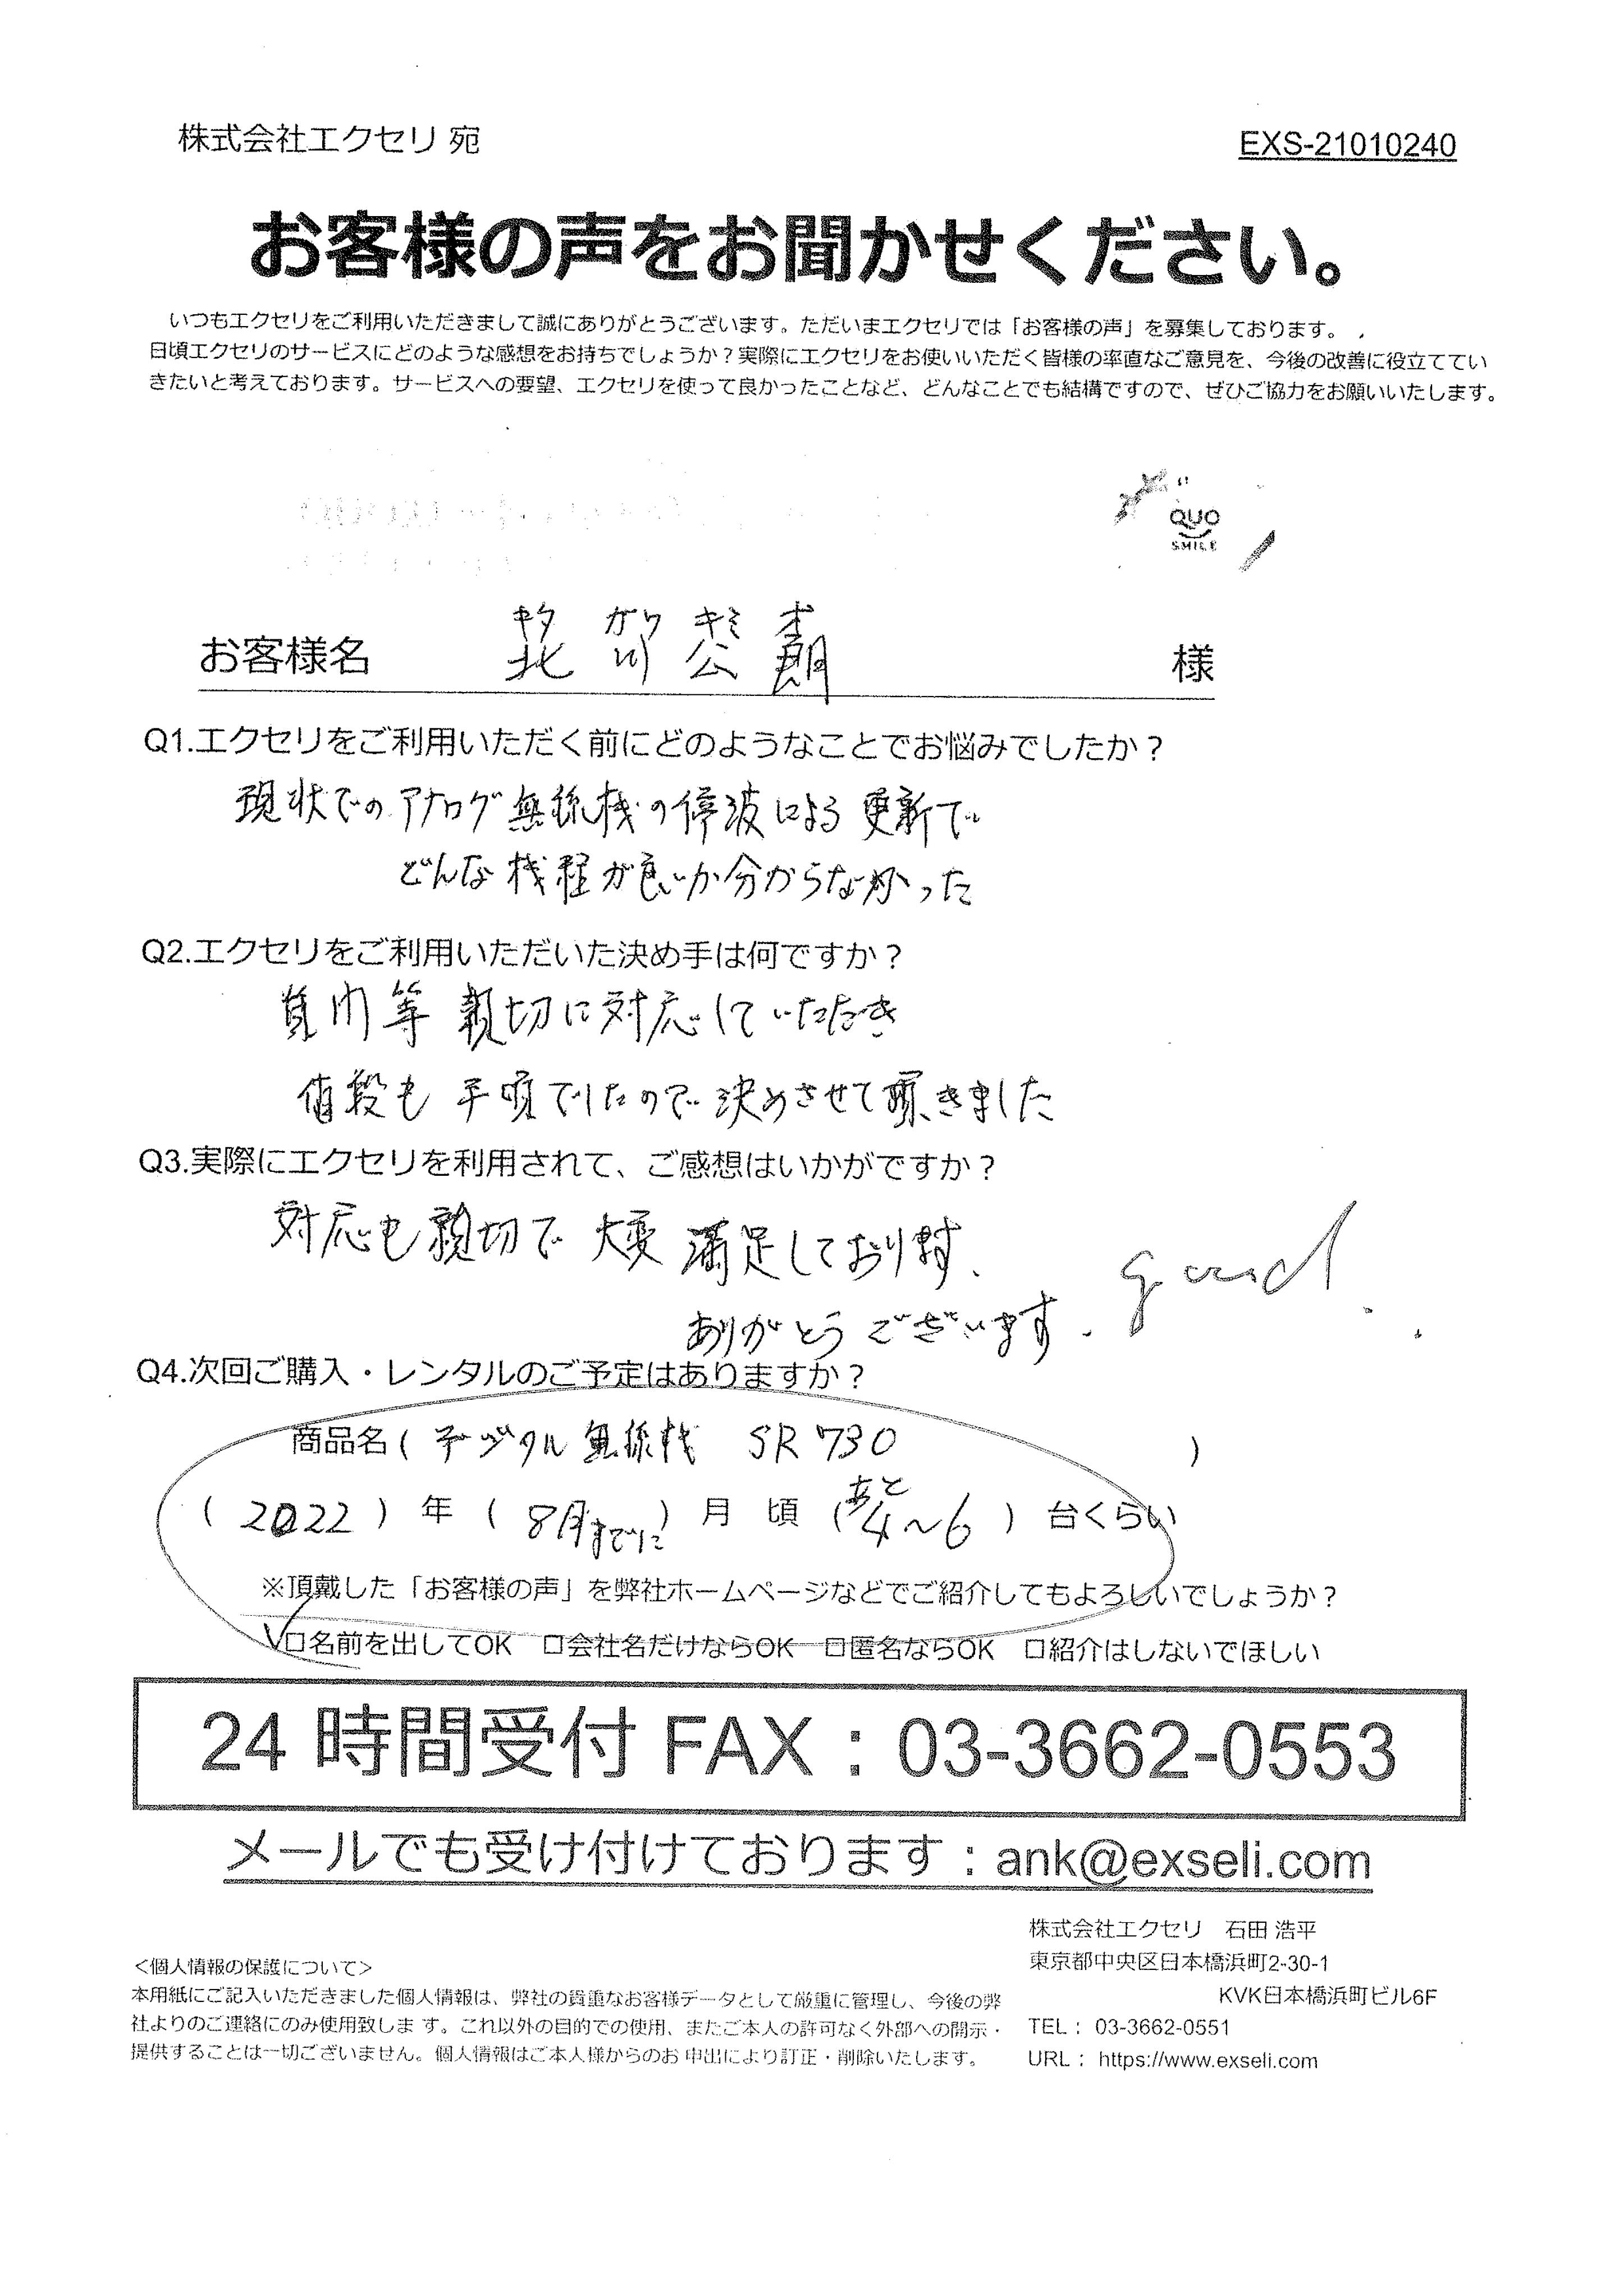 株式会社エクセリ 宛
EXS-21010240
お客様の声をお聞かせください。
いつもエクセリをご利用いただきまして誠にありがとうございます。ただいまエクセリでは「お客様の声」を募集しております。
日頃エクセリのサービスにどのような感想をお持ちでしょうか？実際にエクセリをお使いいただく皆様の率直なご意見を、今後の改善に役立ててい
きたいと考えております。サービスへの要望、エクセリを使って良かったことなど、どんなことでも結構ですので、ぜひご協力をお願いいたします。
QUO
SMILE
キタ ガワ キミ オ
お客様名 北川公朗 様
Q1.エクセリをご利用いただく前にどのようなことでお悩みでしたか？
現状でのアナログ無線機の停波による更新で
どんな機種が良いか分からなかった
Q2.エクセリをご利用いただいた決め手は何ですか？
質問等 親切に対応していただき
値段も 手頃でしたので決めさせて頂きました
Q3.実際にエクセリを利用されて、ご感想はいかがですか？
対応も親切で 大変 満足しております.
good.
ありがとうございます.
Q4.次回ご購入・レンタルのご予定はありますか？
商品名（デジタル無線機 SR730）
（2022）年（8月までに）月 頃（あと4～6）台くらい
※頂戴した「お客様の声」を弊社ホームページなどでご紹介してもよろしいでしょうか？
✓□名前を出してOK □会社名だけならOK □匿名ならOK □紹介はしないでほしい
24 時間受付 FAX：03-3662-0553
メールでも受け付けております：ank@exseli.com
株式会社エクセリ 石田 浩平
東京都中央区日本橋浜町2-30-1
KVK日本橋浜町ビル6F
TEL： 03-3662-0551
URL： https://www.exseli.com
＜個人情報の保護について＞
本用紙にご記入いただきました個人情報は、弊社の貴重なお客様データとして厳重に管理し、今後の弊
社よりのご連絡にのみ使用致しま す。これ以外の目的での使用、またご本人の許可なく外部への開示・
提供することは一切ございません。個人情報はご本人様からのお 申出により訂正・削除いたします。